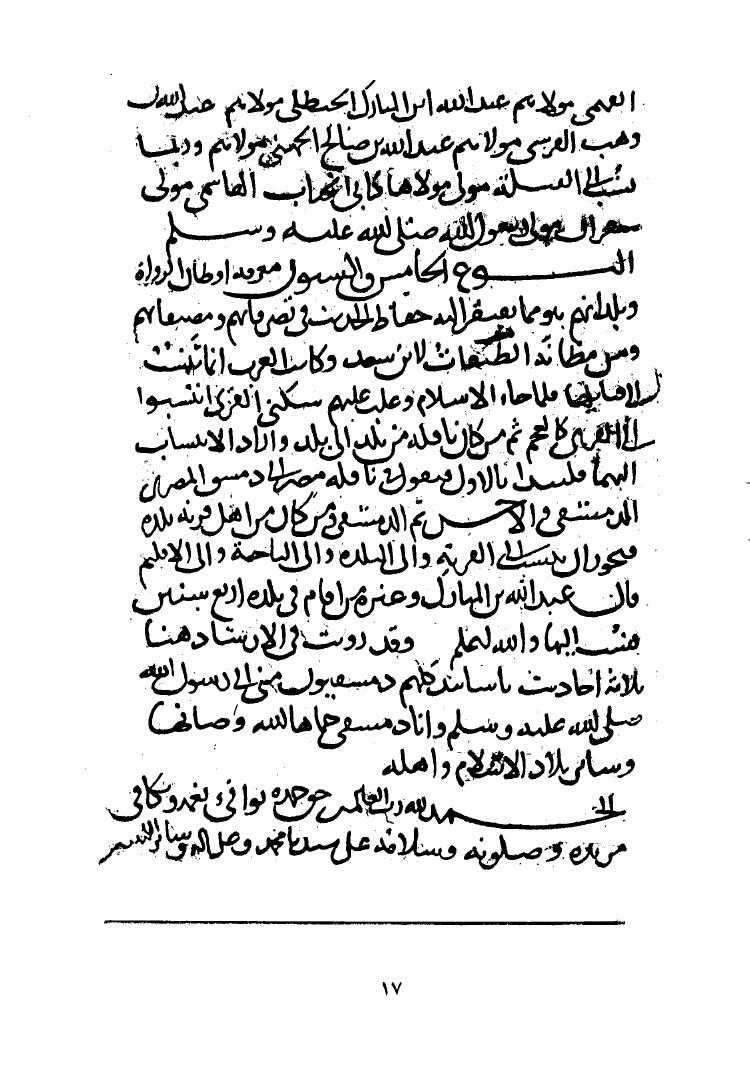 الفهمي مولاهم عبد الله ابن المبارك الحنظلي مولاهم عبد الله بن
وهب القرشي مولاهم عبد الله بن صالح الجهني مولاهم وربما
نسب الى القبيلة مولى مولاها كابي الحباب الهاشمي مولى
شقران مولى رسول الله صلى الله عليه وسلم
النوع الخامس والستون معرفة اوطان الرواة
وبلدانهم هو مما يفتقر اليه حفاظ الحديث في تصرفاتهم ومصنفاتهم
ومن مظانه الطبقات لابن سعد وكانت العرب انما تنتسب
الى قبايلها فلما جاء الاسلام وغلب عليهم سكنى القرى انتسبوا
الى القرى كالعجم ثم من كان ناقلة من بلد الى بلد واراد الانتساب
اليهما فليبدا بالاول فيقول في ناقلة مصر الى دمشق المصري
الدمشقي والاحسن ثم الدمشقي ومن كان من اهل قرية بلدة
فيجوز ان ينسب الى القرية والى البلدة والى الناحية والى الاقليم
قال عبد الله بن المبارك وغيره من اقام في بلدة اربع سنين
نسب اليها والله اعلم وقد رويت في الارشاد هنا
ثلاثة احاديث باسانيد كلهم دمشقيون مني الى رسول الله
صلى الله عليه وسلم وانا دمشقي حماها الله وصانها
وسائر بلاد الاسلام واهله
الحمد لله رب العالمين حق حمده يوافي نعمه ويكافي
مزيده وصلوته وسلامه على سيدنا محمد وعلى اله وسائر النبيين
١٧